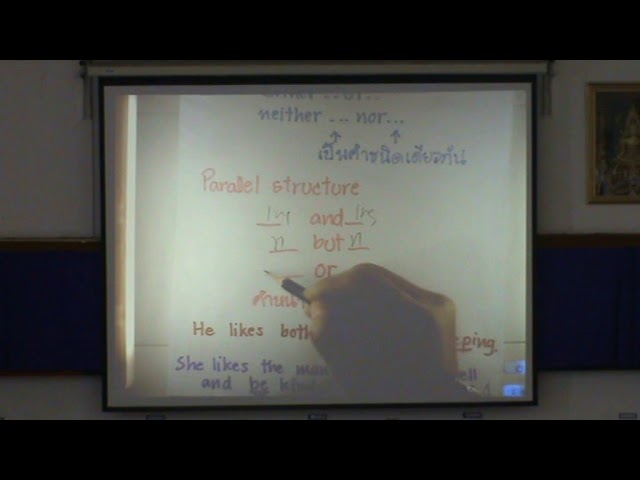 neither ... nor...
เป็นคำชนิดเดียวกัน
Parallel structure
Ing and Ing
n but n
or
He likes both eping.
She likes the man ell
and be kind